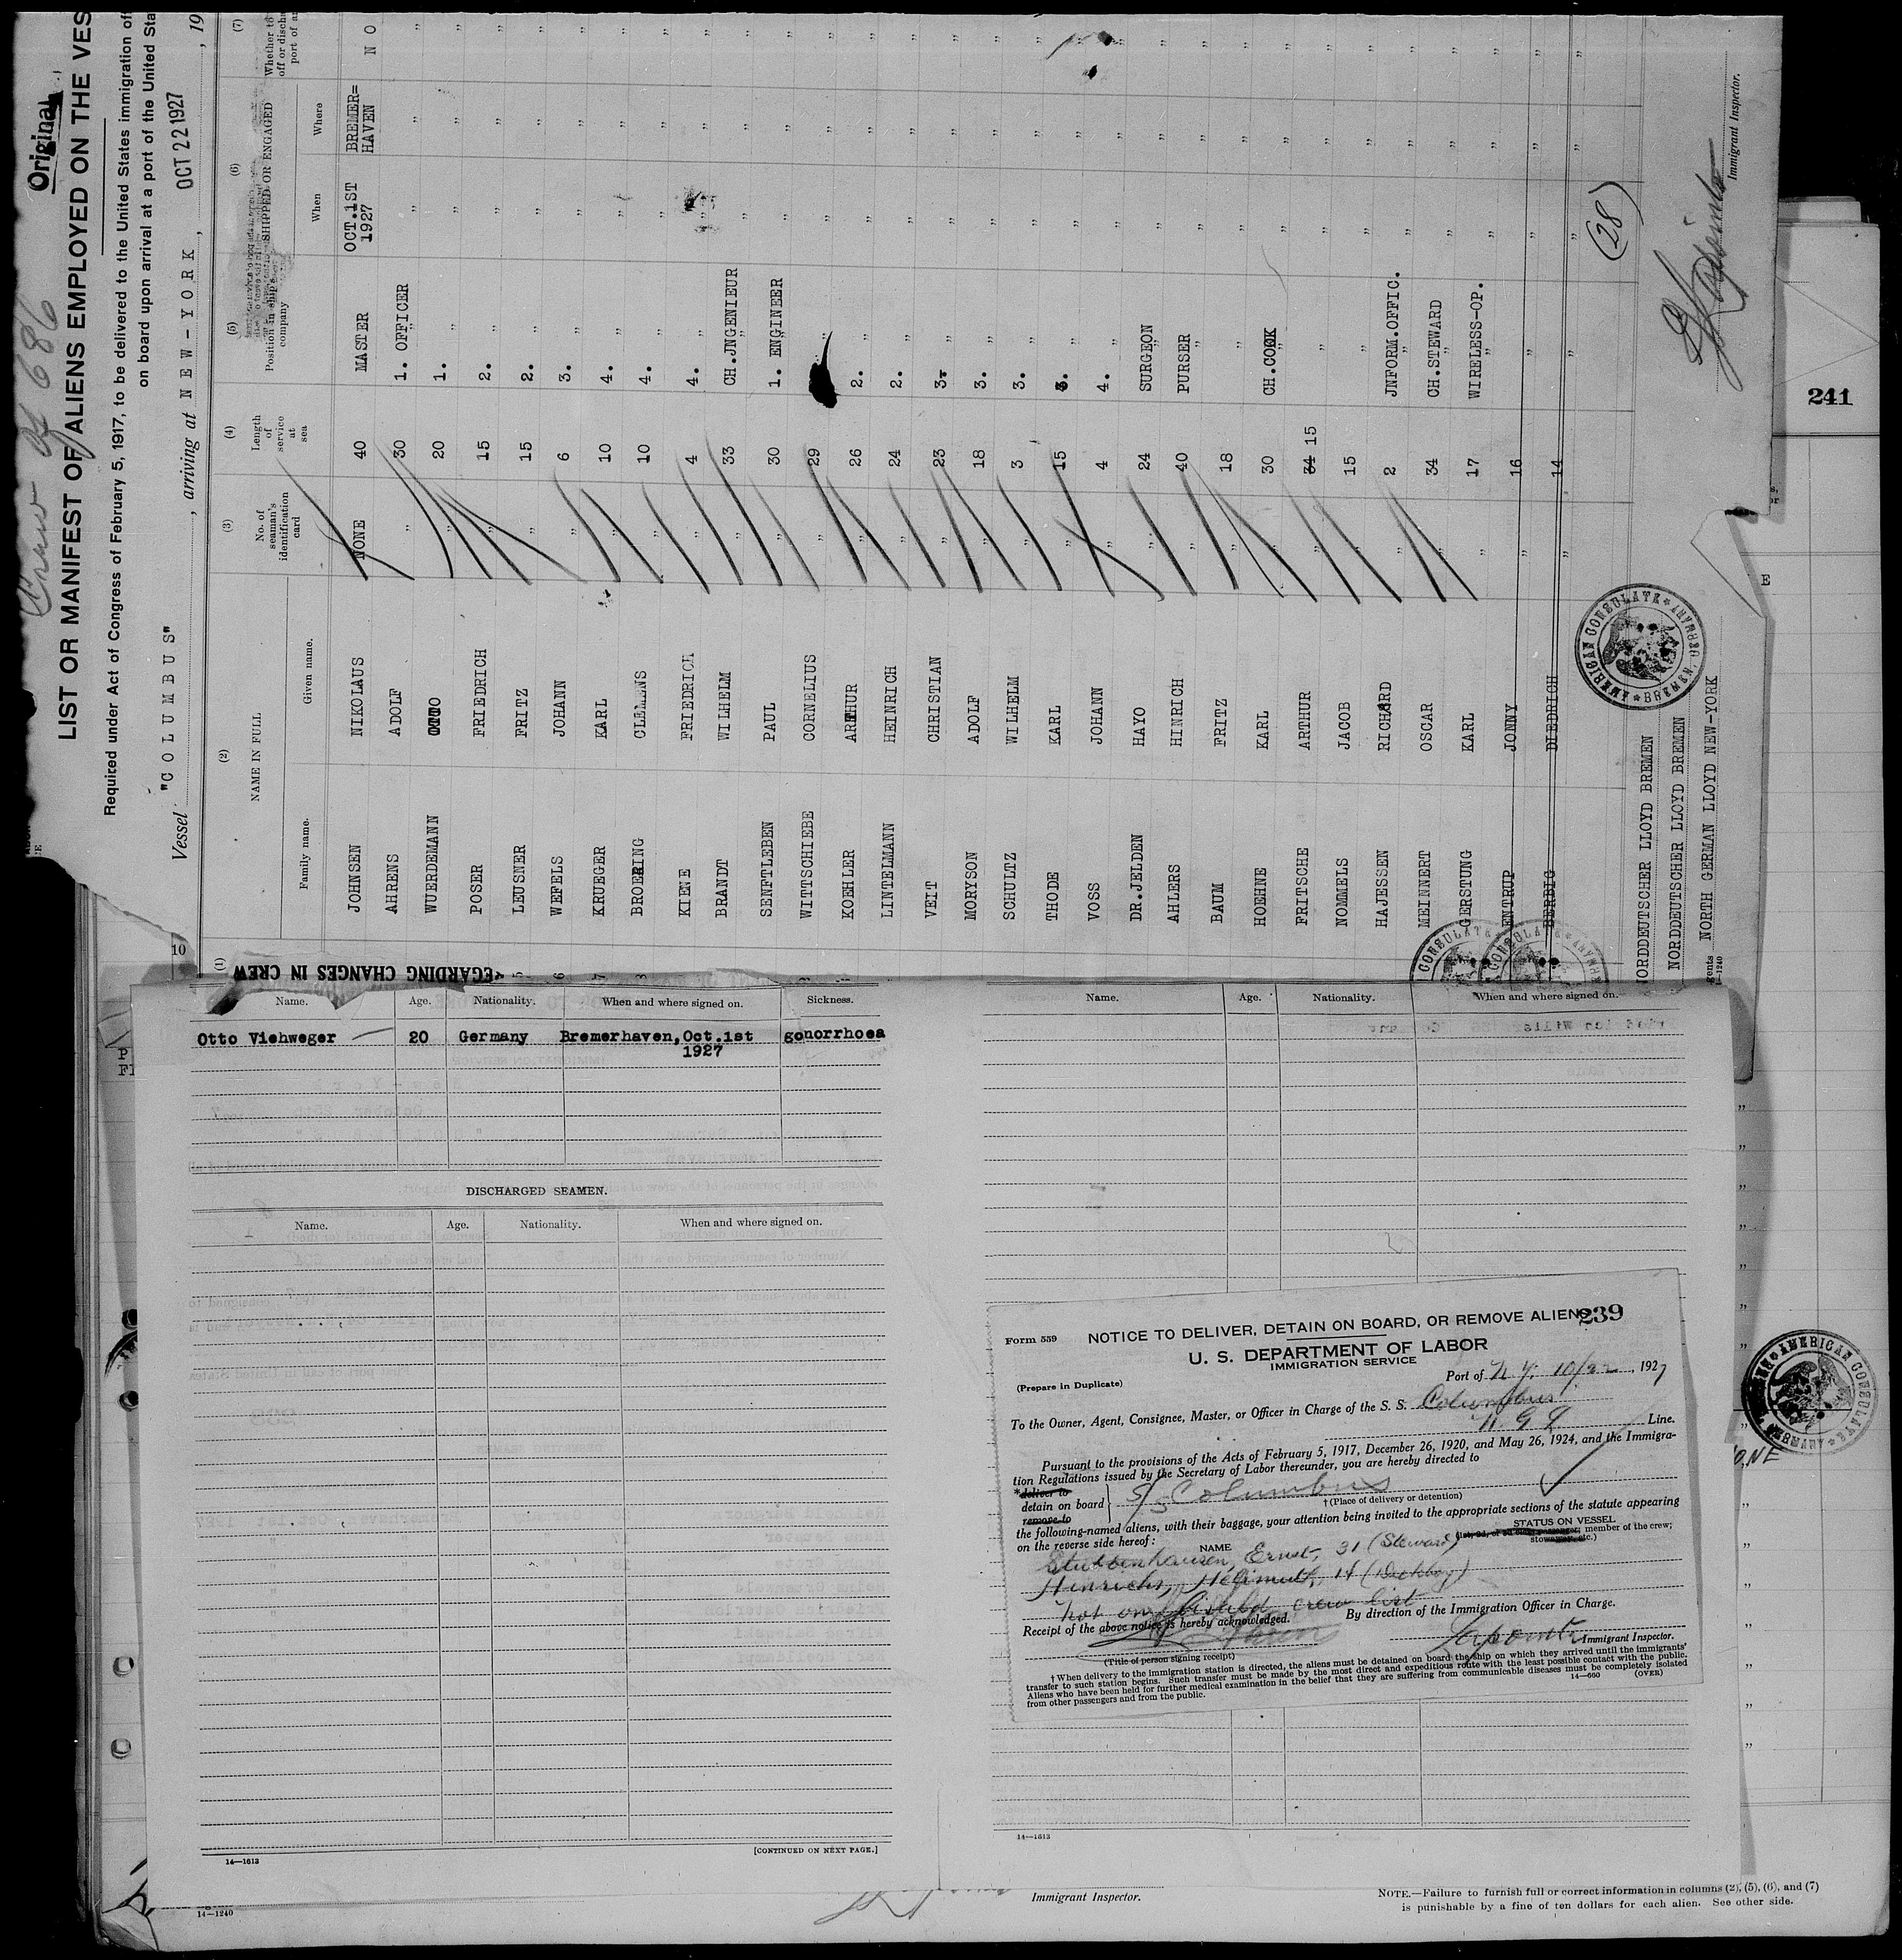 Crew of 686
Original
LIST OR MANIFEST OF ALIENS EMPLOYED ON THE VES
Required under Act of Congress of February 5, 1917, to be delivered to the United States immigration of
on board upon arrival at a port of the United Sta
Vessel "COLUMBUS", arriving at NEW-YORK, OCT 22 1927, 19
(1) (2) (3) (4) (5) (6) (7)
NAME IN FULL
Family name. Given name.
No. of seaman's identification card
Length of service at sea
Position in ship's company
SHIPPED OR ENGAGED
When Where
Whether to
off or discha
port of ar
JOHNSEN NIKOLAUS NONE 40 MASTER OCT.1ST 1927 BREMER= HAVEN NO
AHRENS ADOLF " 30 1. OFFICER " " "
WUERDEMANN OTTO " 20 1. " " " "
POSER FRIEDRICH " 15 2. " " " "
LEUSNER FRITZ " 15 2. " " " "
WEFELS JOHANN " 6 3. " " " "
KRUEGER KARL " 10 4. " " " "
BROERING CLEMENS " 10 4. " " " "
KIENE FRIEDRICH " 4 4. " " " "
BRANDT WILHELM " 33 CH.JNGENIEUR " " "
SENFTLEBEN PAUL " 30 1. ENGINEER " " "
WITTSCHIEBE CORNELIUS " 29 " " " "
KOEHLER ARTHUR " 26 2. " " " "
LINTELMANN HEINRICH " 24 2. " " " "
VEIT CHRISTIAN " 23 3. " " " "
MORYSON ADOLF " 18 3. " " " "
SCHULTZ WILHELM " 3 3. " " " "
THODE KARL " 15 3. " " " "
VOSS JOHANN " 4 4. " " " "
DR.JELDEN HAYO " 24 SURGEON " " "
AHLERS HINRICH " 40 PURSER " " "
BAUM FRITZ " 18 " " " "
HOEHNE KARL " 30 CH.COOK " " "
FRITSCHE ARTHUR " 34 15 " " " "
NOMMELS JACOB " 15 " " " "
HAJESSEN RICHARD " 2 JNFORM.OFFIC. " " "
MEINNERT OSCAR " 34 CH.STEWARD " " "
GERSTUNG KARL " 17 WIRELESS-OP. " " "
ENTRUP JONNY " 16 " " " "
BERBIG DIEDRICH " 14 " " " "
(28)
Immigrant Inspector.
NORDDEUTSCHER LLOYD BREMEN
NORDDEUTSCHER LLOYD BREMEN
gents NORTH GERMAN LLOYD NEW-YORK
-1240
AMERICAN CONSULATE
BREMEN, GERMANY
241
10
EGARDING CHANGES IN CREW
Name. Age. Nationality. When and where signed on. Sickness.
Otto Viehweger 20 Germany Bremerhaven, Oct.1st gonorrhoea
1927
DISCHARGED SEAMEN.
Name. Age. Nationality. When and where signed on.
14—1613 [CONTINUED ON NEXT PAGE.]
Name. Age. Nationality. When and where signed on.
Form 559 NOTICE TO DELIVER, DETAIN ON BOARD, OR REMOVE ALIENS 239
U. S. DEPARTMENT OF LABOR
IMMIGRATION SERVICE
(Prepare in Duplicate) Port of N.Y. 10/22, 1927
To the Owner, Agent, Consignee, Master, or Officer in Charge of the S. S. Columbus
N. G. L Line.
Pursuant to the provisions of the Acts of February 5, 1917, December 26, 1920, and May 26, 1924, and the Immigra-
tion Regulations issued by the Secretary of Labor thereunder, you are hereby directed to
*deliver to
detain on board S/S Columbus
remove to
†(Place of delivery or detention)
the following-named aliens, with their baggage, your attention being invited to the appropriate sections of the statute appearing
on the reverse side hereof:
NAME STATUS ON VESSEL
member of the crew;
stowaway, etc.)
Stubbenhausen, Ernst, 31 (Steward)
Hinrichs, Helimuth, 14 (Deckboy)
not on visaed crew list
Receipt of the above notice is hereby acknowledged. By direction of the Immigration Officer in Charge.
Immigrant Inspector.
(Title of person signing receipt)
†When delivery to the immigration station is directed, the aliens must be detained on board the ship on which they arrived until the immigrants'
transfer to such station begins. Such transfer must be made by the most direct and expeditious route with the least possible contact with the public.
Aliens who have been held for further medical examination in the belief that they are suffering from communicable diseases must be completely isolated
from other passengers and from the public. 14—660 (OVER)
14—1613
AMERICAN CONSULATE
14—1240
Immigrant Inspector.
NOTE.—Failure to furnish full or correct information in columns (2), (5), (6), and (7)
is punishable by a fine of ten dollars for each alien. See other side.